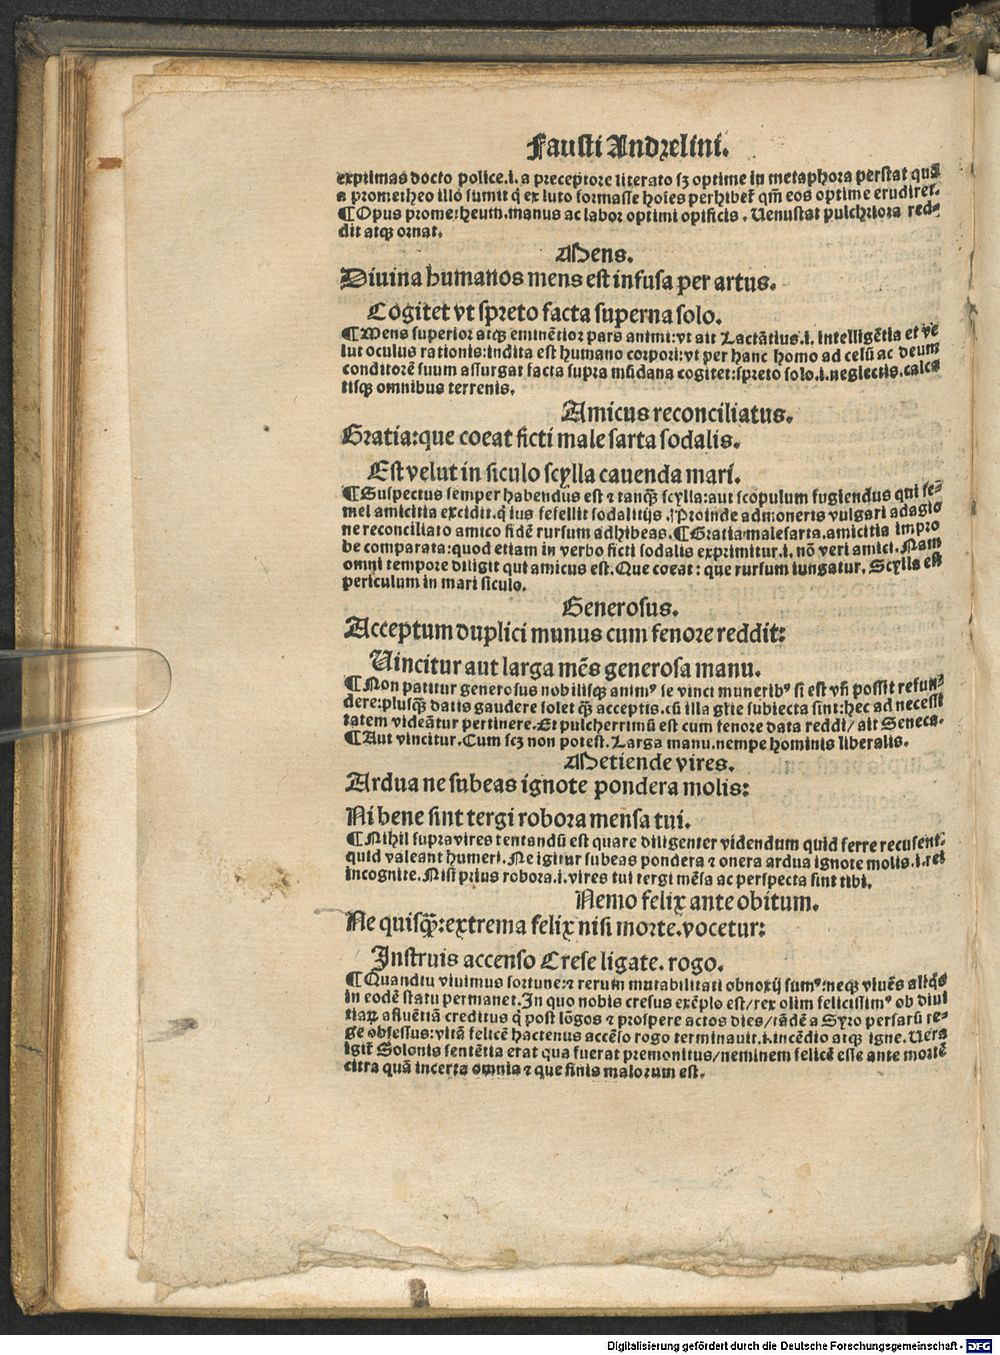 Fausti Andrelini.
exptimas docto police.i. a preceptore literato sꝫ optime in metaphora perstat quā
a prometheo illo sumit q̇ ex luto formasse hoīes perhibet᷑ qm̄ eos optime erudiret.
¶Opus prometheum.manus ac labor optimi opificis. Uenustat pulchriora red-
dit atqꝫ ornat.
Mens.
Diuina humanos mens est infusa per artus.
Cogitet vt spreto facta superna solo.
¶Mens superior atqꝫ eminētior pars animi:vt ait Lactātius.i. intelligētia et ve
lut oculus rationis:indita est humano corpori:vt per hanc homo ad celū ac deum
conditorē suum assurgat facta supra mūdana cogitet:spreto solo.i.neglectis.calca
tisqꝫ omnibus terrenis.
Amicus reconciliatus.
Gratia:que coeat ficti male sarta sodalis.
Est velut in siculo scylla cauenda mari.
¶Suspectus semper habendus est ⁊ tanqꝫ scylla:aut scopulum fugiendus qui se-
mel amicitia excidit.q̇ ius fefellit sodalitijs. Proinde admoneris vulgari adagio
ne reconciliato amico fidē rursum adhibeas.¶Gratia malesarta.amicitia impro
be comparata:quod etiam in verbo ficti sodalis exprimitur.i. nō veri amici. Nam
omni tempore diligit qui amicus est. Que coeat: que rursum iungatur. Scylla est
periculum in mari siculo.
Generosus.
Acceptum duplici munus cum fenore reddit:
Uincitur aut larga mēs generosa manu.
¶Non patitur generosus nobilisqꝫ animꝰ se vinci muneribꝰ si est vn̄ possit refun-
dere:plusqꝫ datis gaudere solet qꝫ acceptis.cū illa glīe subiecta sint:hec ad necessi
tatem videātur pertinere.Et pulcherrimū est cum fenore data reddi/ ait Seneca.
¶Aut vincitur.Cum scꝫ non potest. Larga manu.nempe hominis liberalis.
Metiende vires.
Ardua ne subeas ignote pondera molis:
Ni bene sint tergi robora mensa tui.
¶Nihil supra vires tentandū est quare diligenter videndum quid ferre recusent.
quid valeant humeri. Ne igitur subeas pondera ⁊ onera ardua ignote molis.i.rei
incognite. Nisi prius robora.i.vires tui tergi mēsa ac perspecta sint tibi.
Nemo felix ante obitum.
Ne quisqꝫ:extrema felix nisi morte.vocetur:
Instruis accenso Crese ligate. rogo.
¶Quandiu viuimus fortune:⁊ rerum mutabilitati obnoxij sumꝰ:neqꝫ viuēs aliq̇s
in eodē statu permanet.In quo nobis cresus exēplo est/rex olim felicissimꝰ ob diui
tiaꝝ afluētiā creditus q̇ post lōgos ⁊ prospere actos dies/tādē a Syro persarū re-
ge obsessus:vitā felicē hactenus accēso rogo terminauit.i.incēdio atqꝫ igne. Uera
igit᷑ Solonis sentētia erat qua fuerat premonitus/neminem felicē esse ante mortē
citra quā incerta omnia ⁊ que finis malorum est.
Digitalisierung gefördert durch die Deutsche Forschungsgemeinschaft - DFG